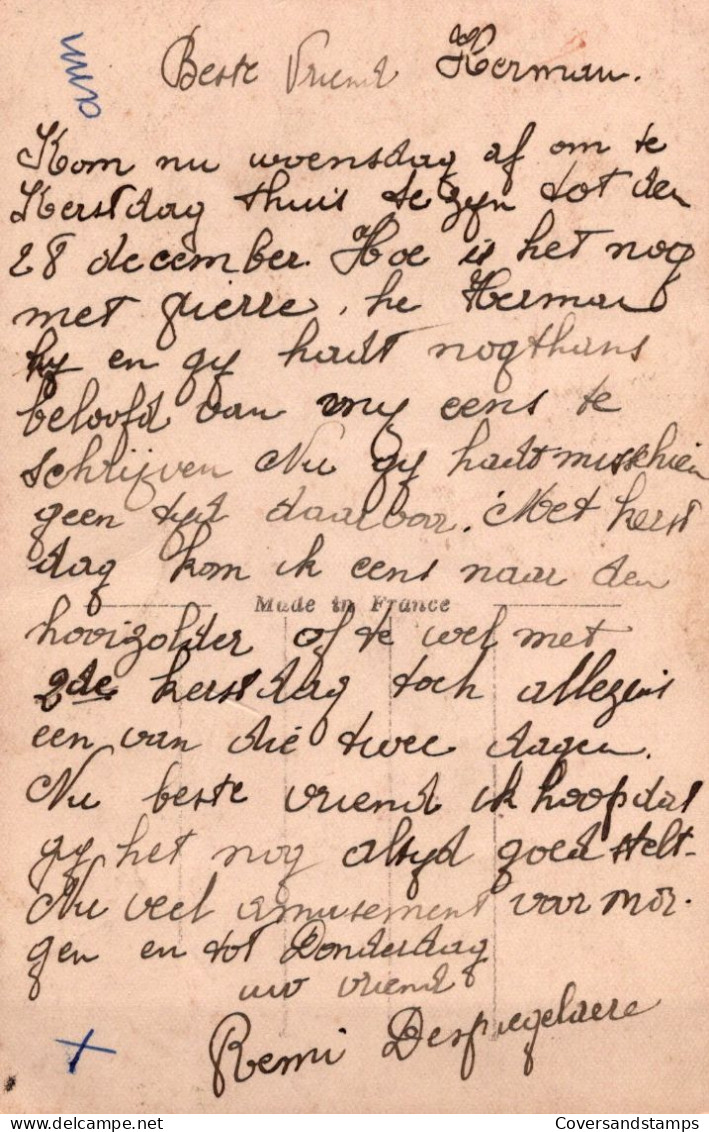 Beste Vriend Herman.
Kom nu woensdag af om te
Kerstdag thuis te zyn tot den
28 december. Hoe is het nog
met pierre, he Herman
hy en gy hadt nogthans
beloofd van my eens te
schrijven Nu gy hadt misschien
geen tyd daarvoor. Met kerst
dag kom ik eens naar den
Made in France
hooizolder of te wel met
2de kerstdag toch allezins
een van die twee dagen.
Nu beste vriend ik hoop dat
gy het nog altyd goed stelt-
Nu veel amusement voor mor-
gen en tot Donderdag
uw vriend
Remi Despiegelaere
Coversandstamps